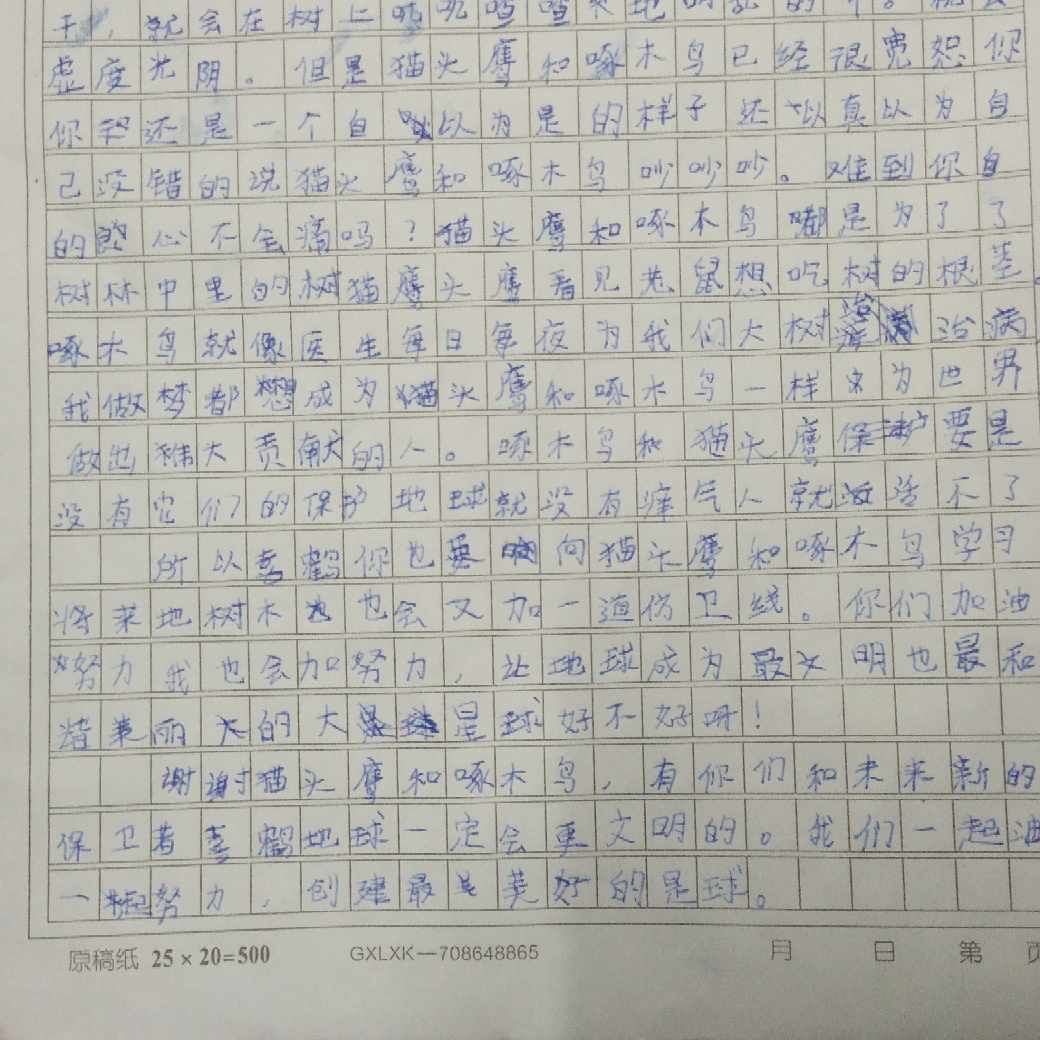 干，就会在树上叽叽喳喳
虚度光阴。但是猫头鹰和啄木鸟已经很宽恕你
你还是一个自以为是的样子还以真以为自
己没错的说猫头鹰和啄木鸟吵吵吵。难到你自
的心不会痛吗？猫头鹰和啄木鸟都是为了了
树林中里的树猫鹰头鹰看见老鼠想吃树的根茎。
啄木鸟就像医生每日每夜为我们大树治病
我做梦都想成为猫头鹰和啄木鸟一样为世界
做出伟大贡献的人。啄木鸟和猫头鹰保护要是
没有它们的保护地球就没有氧气人就活不了
所以喜鹤你也要向猫头鹰和啄木鸟学习
将来地树木也会又加一道伤卫线。你们加油
努力我也会加努力，让地球成为最文明也最和
谐美丽大的大星球好不好呀！
谢谢猫头鹰和啄木鸟，有你们和未来新的
保卫者喜鹤地球一定会更文明的。我们一起油
一起努力，创建最美好的星球。
原稿纸 25×20=500 GXLXK—708648865 月 日 第 页